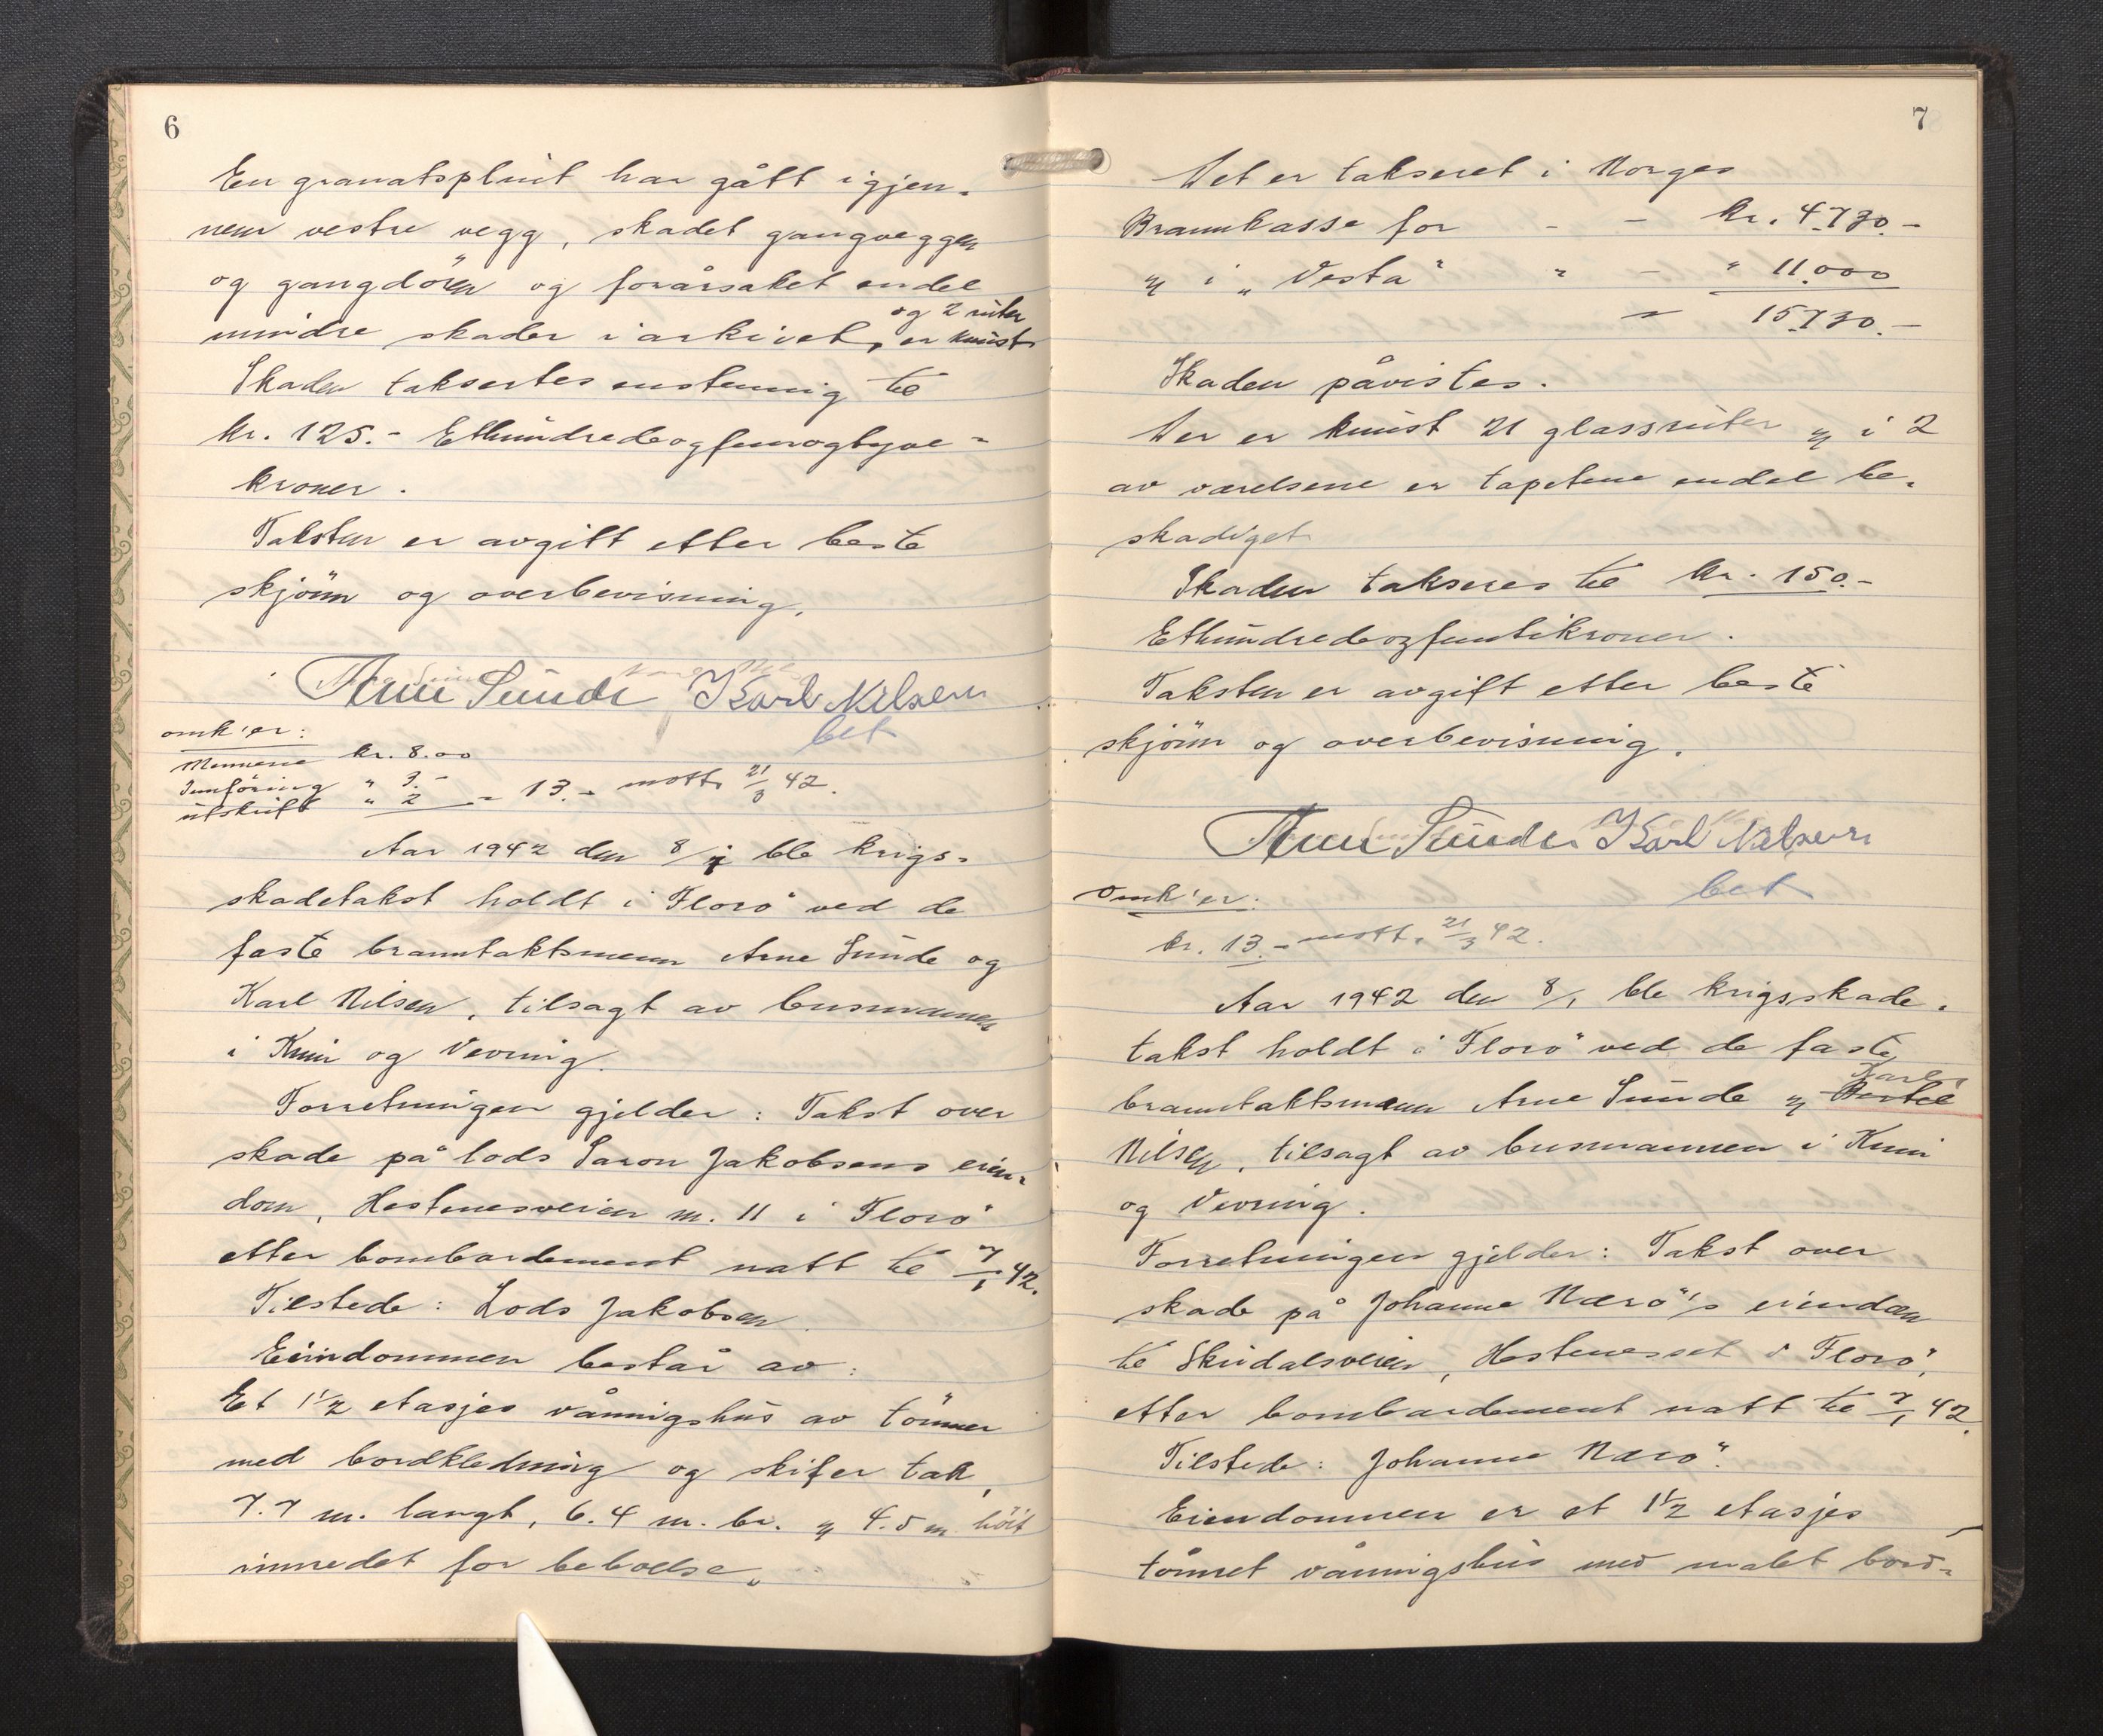 6
En granatsplint har gått igjen-
nem vestre vegg, skadet gangveggen
og gangdören og forårsaket endel
og 2 ruter
mindre skader i arkivet, er knust
Skaden taksertes enstemmig til
kr. 125.- Ethundredeogfemogtyve-
kroner.
Taksten er avgitt etter beste
skjönn og overbevisning.
Arne Sunde Karl Nilsen
bet
omk'er:
Mennene kr. 8.00
Innföring " 3.-
utskrift " 2 - 13.- mott. 21/3 42.
Aar 1942 den 8/1 ble krigs-
skadetakst holdt i Florö ved de
faste branntakstmenn Arne Sunde og
Karl Nilsen, tilsagt av lensmannen
i Kinn og Vevring.
Forretningen gjelder: Takst over
skade på lods Saron Jakobsens eien-
dom, Hestenesveien nr. 11 i Florö
etter bombardement natt til 7/1 42.
Tilstede: Lods Jakobsen.
Eiendommen består av:
Et 1 1/2 etasjes våningshus av tömmer
med bordkledning og skifer tak,
7.7 m. langt, 6.4 m. br. og 4.5 m höit
innredet for beboelse.
7
Det er taksert i Norges
Brannkasse for - - kr. 4730.-
og i "Vesta" " - " 11.000
" 15730.-
Skaden påvistes.
Der er knust 21 glassruter og i 2
av værelsene er tapetene endel be-
skadiget
Skaden takseres til kr. 150.-
Ethundredeogfemtikroner.
Taksten er avgitt etter beste
skjönn og overbevisning.
Arne Sunde Karl Nilsen
bet
Omk'er:
kr. 13.- mott. 21/3 42.
Aar 1942 den 8/1 ble krigsskade-
takst holdt i Florö ved de faste
Karl
branntakstmenn Arne Sunde og Bertil
Nilsen, tilsagt av lensmannen i Kinn
og Vevring.
Forretningen gjelder: Takst over
skade på Johanne Nærö's eiendom
til Skudalsveien, Hestenesset i Florö,
etter bombardement natt til 7/1 42.
Tilstede: Johanne Nærö.
Eiendommen er et 1 1/2 etasjes
tömret våningshus med malet bord-